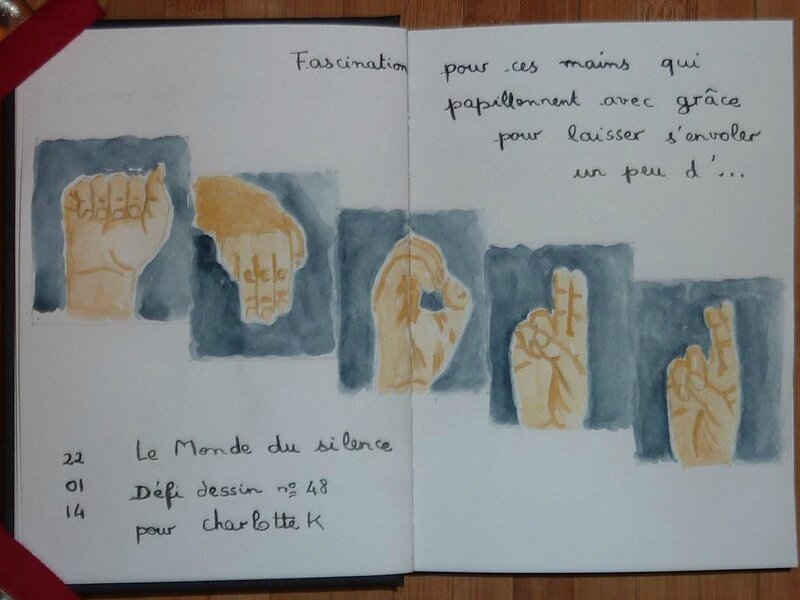 Fascination pour ces mains qui
papillonnent avec grâce
pour laisser s'envoler
un peu d'...
22
01
14
Le Monde du silence
Défi dessin nº 48
pour charlotte K